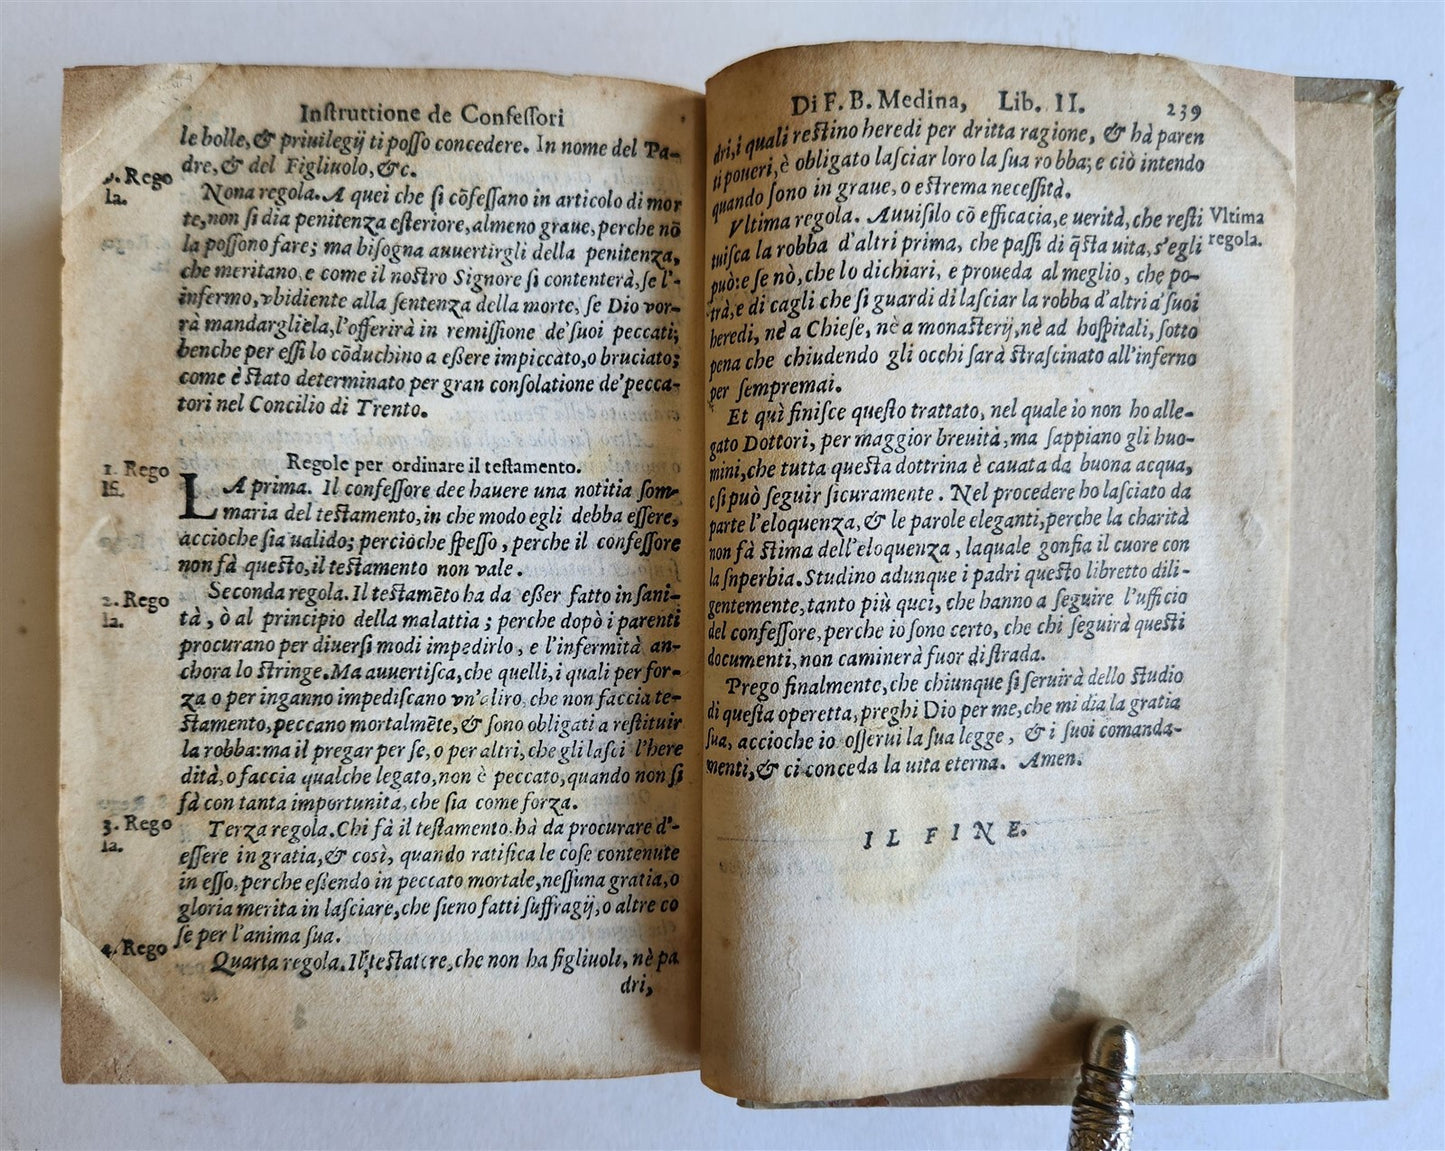 Inſtruttione de Confeſſori
le bolle, & priuilegij ti poſſo concedere. In nome del Pa-
dre, & del Figliuolo, &c.
9. Rego
la.
Nona regola. A quei che ſi cõfeſſano in articolo di mor
te, non ſi dia penitenza eſteriore, almeno graue, perche nõ
la poſſono fare; ma biſogna auuertirgli della penitenza,
che meritano, e come il noſtro Signore ſi contenterà, ſe l'-
infermo, vbidiente alla ſentenza della morte, ſe Dio vor-
rà mandargliela, l'offerirà in remiſſione de' ſuoi peccati;
benche per eſſi lo cõduchino a eßere impiccato, o bruciato;
come è ſtato determinato per gran conſolatione de' pecca-
tori nel Concilio di Trento.
Regole per ordinare il teſtamento.
1. Rego
la.
LA prima. Il confeſſore dee hauere una notitia ſom-
maria del teſtamento, in che modo egli debba eſſere,
accioche ſia ualido; percioche ſpeſſo, perche il confeſſore
non fà queſto, il teſtamento non vale.
2. Rego
la.
Seconda regola. Il teſtamẽto ha da eßer fatto in ſani-
tà, ò al principio della malattia; perche dopò i parenti
procurano per diuerſi modi impedirlo, e l'infermità an-
chora lo ſtringe. Ma auuertiſca, che quelli, i quali per for-
za o per inganno impediſcano vn'altro, che non faccia te-
ſtamento, peccano mortalmẽte, & ſono obligati a reſtituir
la robba: ma il pregar per ſe, o per altri, che gli laſci l'here
dità, o faccia qualche legato, non è peccato, quando non ſi
fà con tanta importunità, che ſia come forza.
3. Rego
la.
Terza regola. Chi fà il teſtamento hà da procurare d'-
eſſere in gratia, & così, quando ratifica le coſe contenute
in eſſo, perche eßendo in peccato mortale, neſſuna gratia, o
gloria merita in laſciare, che ſieno fatti ſuffragij, o altre co
ſe per l'anima ſua.
4. Rego
Quarta regola. Il teſtatore, che non ha figliuoli, nè pa
dri,
Di F. B. Medina, Lib. II. 239
dri, i quali reſtino heredi per dritta ragione, & hà paren
ti poueri, è obligato laſciar loro la ſua robba; e ciò intendo
quando ſono in graue, o eſtrema neceſſità.
Vltima regola. Auuiſilo cõ efficacia, e uerità, che reſti
Vltima
regola.
tuiſca la robba d'altri prima, che paſſi di q̃ſta uita, s'egli
può: e ſe nò, che lo dichiari, e proueda al meglio, che po-
trà, e di cagli che ſi guardi di laſciar la robba d'altri a' ſuoi
heredi, nè a Chieſe, nè a monaſterij, nè ad hoſpitali, ſotto
pena che chiudendo gli occhi ſarà ſtraſcinato all'inferno
per ſempremai.
Et quì finiſce queſto trattato, nel quale io non ho alle-
gato Dottori, per maggior breuità, ma ſappiano gli huo-
mini, che tutta queſta dottrina è cauata da buona acqua,
e ſi può ſeguir ſicuramente. Nel procedere ho laſciato da
parte l'eloquenza, & le parole eleganti, perche la charità
non fà ſtima dell'eloquenza, laquale gonfia il cuore con
la ſnperbia. Studino adunque i padri queſto libretto dili-
gentemente, tanto più quei, che hanno a ſeguire l'ufficio
del confeſſore, perche io ſono certo, che chi ſeguirà queſti
documenti, non caminerà fuor di ſtrada.
Prego finalmente, che chiunque ſi ſeruirà dello ſtudio
di queſta operetta, preghi Dio per me, che mi dia la gratia
ſua, accioche io oſſerui la ſua legge, & i ſuoi comanda-
menti, & ci conceda la uita eterna. Amen.
IL FINE.